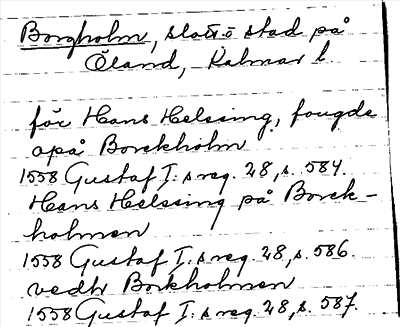 Borgholm, slott o stad på
Öland, Kalmar l.
för Hans Helsing, fougde
opå Borckholm
1558 Gustaf I:s reg. 28, s. 584.
Hans Helssing på Borck-
holmen
1558 Gustaf I:s reg. 28, s. 586.
vedh Borkholmen
1558 Gustaf I:s reg. 28, s. 587.